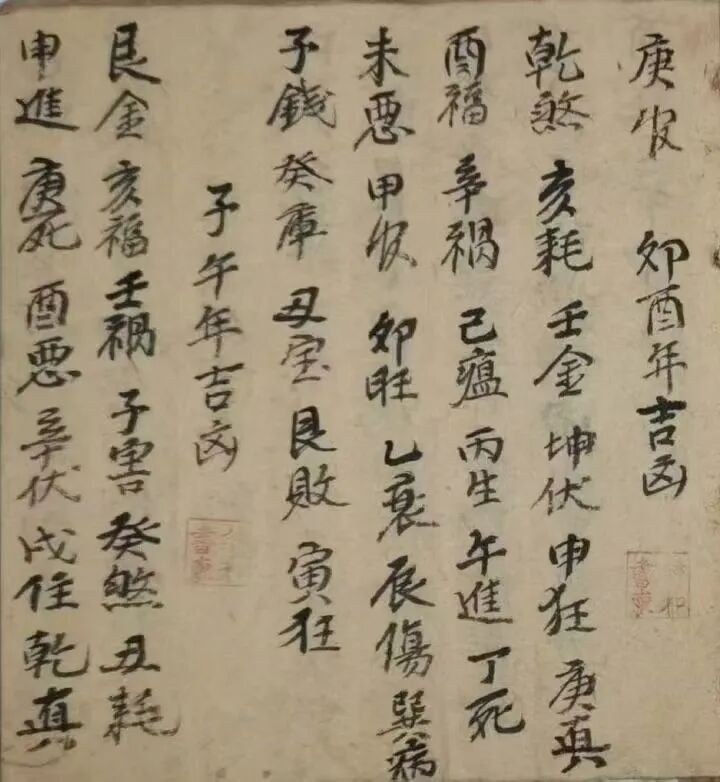 庚官 卯酉年吉凶
乾煞 亥耗 壬金 坤伏 申狂 庚真
酉福 辛禍 己瘟 丙生 午進 丁死
未惡 甲官 卯旺 乙衰 辰傷 巽病
子錢 癸庫 丑宝 艮敗 寅狂
子午年吉凶
艮金 亥福 壬禍 子害 癸煞 丑耗
申進 庚死 酉惡 辛伏 戌住 乾真